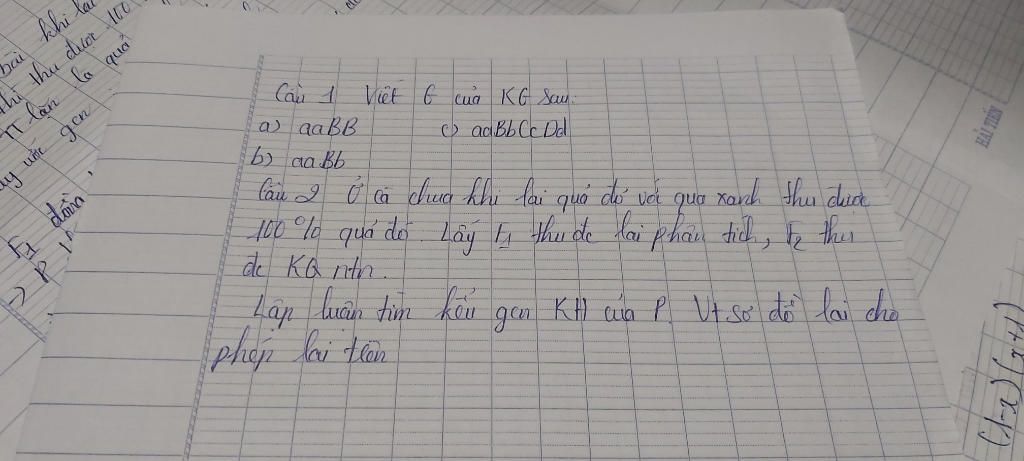 bài khi lai
thì thu được 100
π lần là quả
ước gen
F1 đồng
→ P
Câu 1 Viết G của KG sau:
a) aaBB c) aaBbCcDd
b) aaBb
Câu 2 Ở cà chua khi lai quả đỏ với qua xanh thu được
100% quả đỏ. Lấy F1 thu đc lai phân tích, F2 thu
đc KQ ntn.
Lập luận tìm kiểu gen KH của P. Vt sơ đồ lai cho
phép lai trên
HẢI TIẾN
(1-x)(y+1)